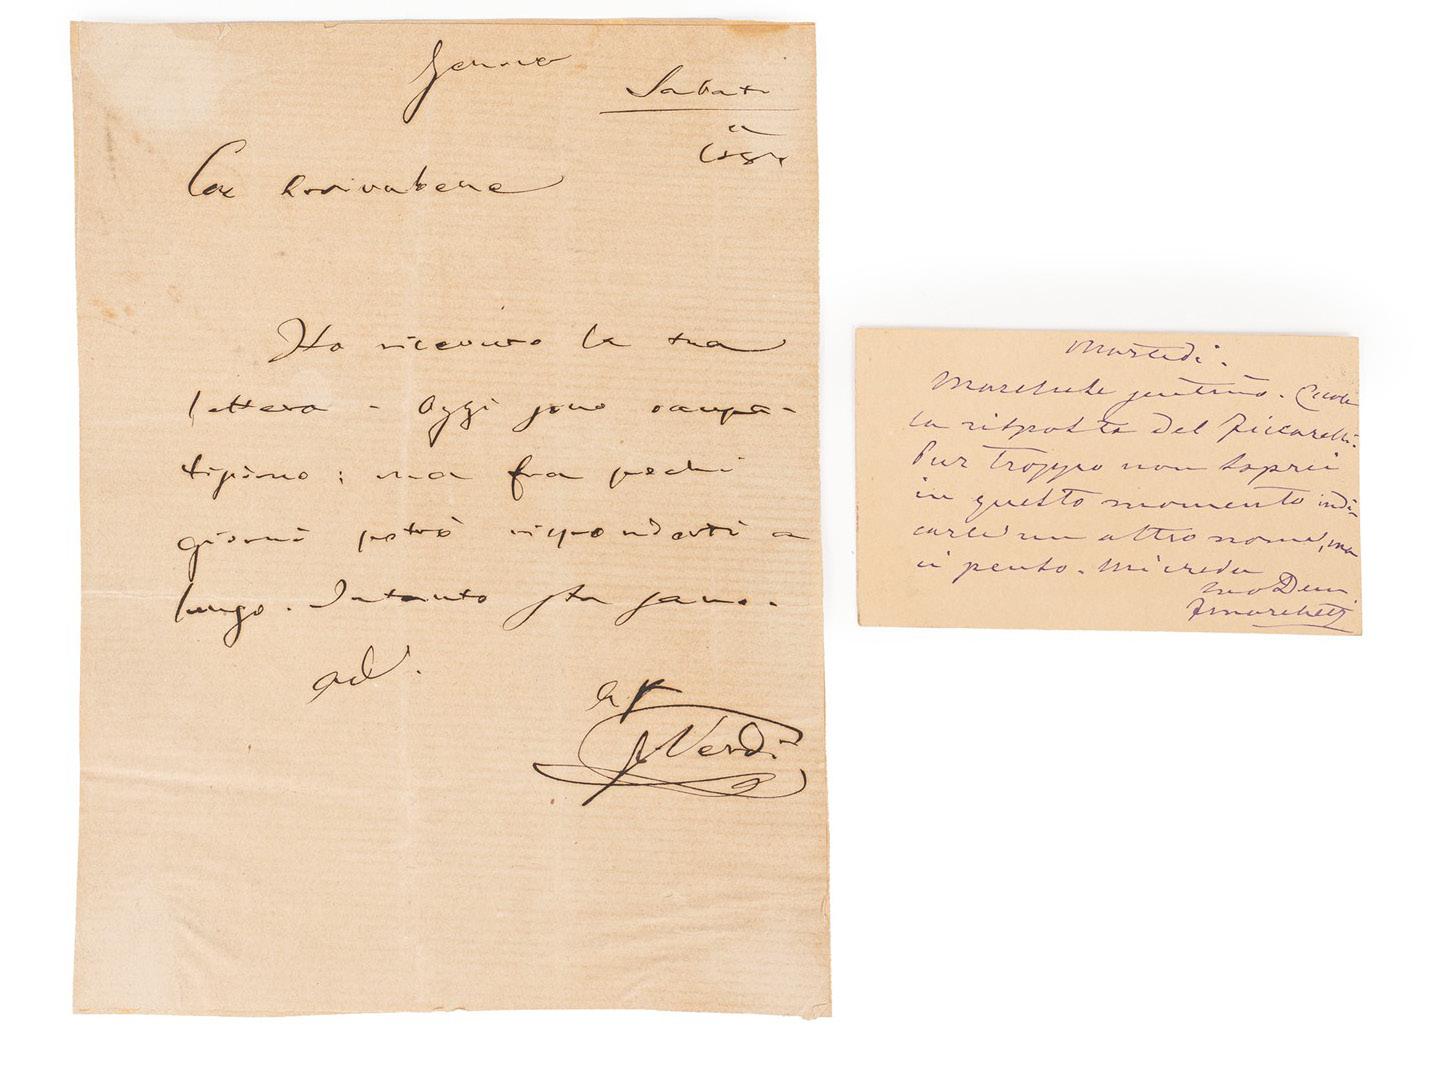 Genova
Sabato
Car Arrivabene
Ho ricevuto la tua
lettera - Oggi sono occupa-
tissimo; ma fra pochi
giorni potrò risponderti a
lungo. Intanto sta sano.
ad.
G Verdi
Martedì.
Marchese gentmo. Eccole
la risposta del Ficcarelli.
Pur troppo non saprei
in questo momento indi-
carle un altro nome, ma
ci penso. Mi creda
suo Dev
FMarchetti